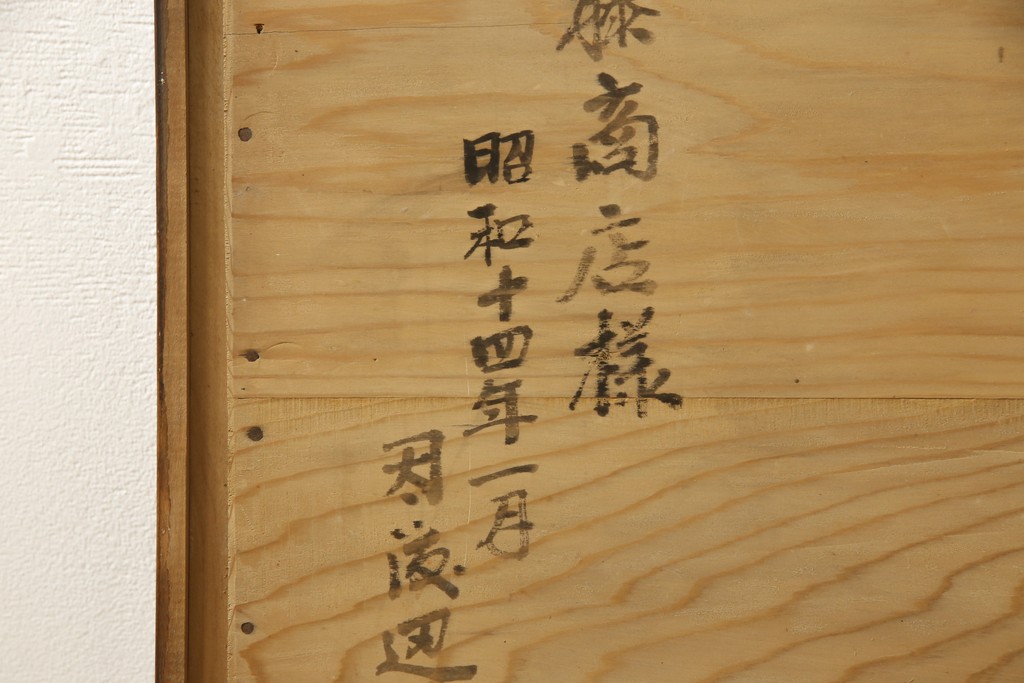 藤商店様
昭和十四年一月
渡辺